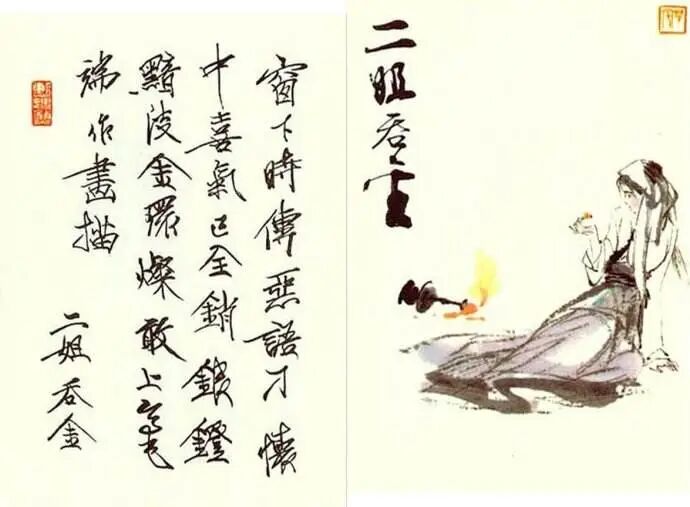 窗下時傳惡語刁懷
中喜氣已全銷銀鐙
黯淡金環燦敢上毫
端作畫描
二姐吞金
二姐吞金